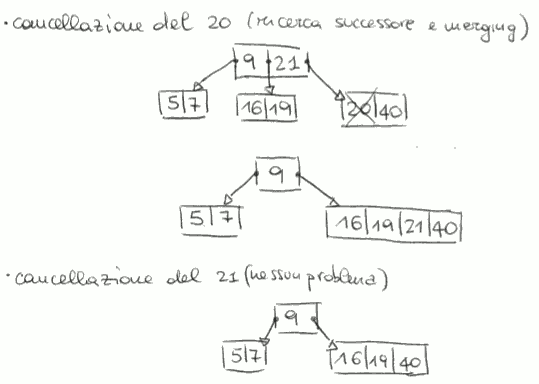 · cancellazione del 20 (ricerca successore e merging)
9 21
5 7 16 19 20 40
9
5 7 16 19 21 40
· cancellazione del 21 (nessun problema)
9
5 7 16 19 40